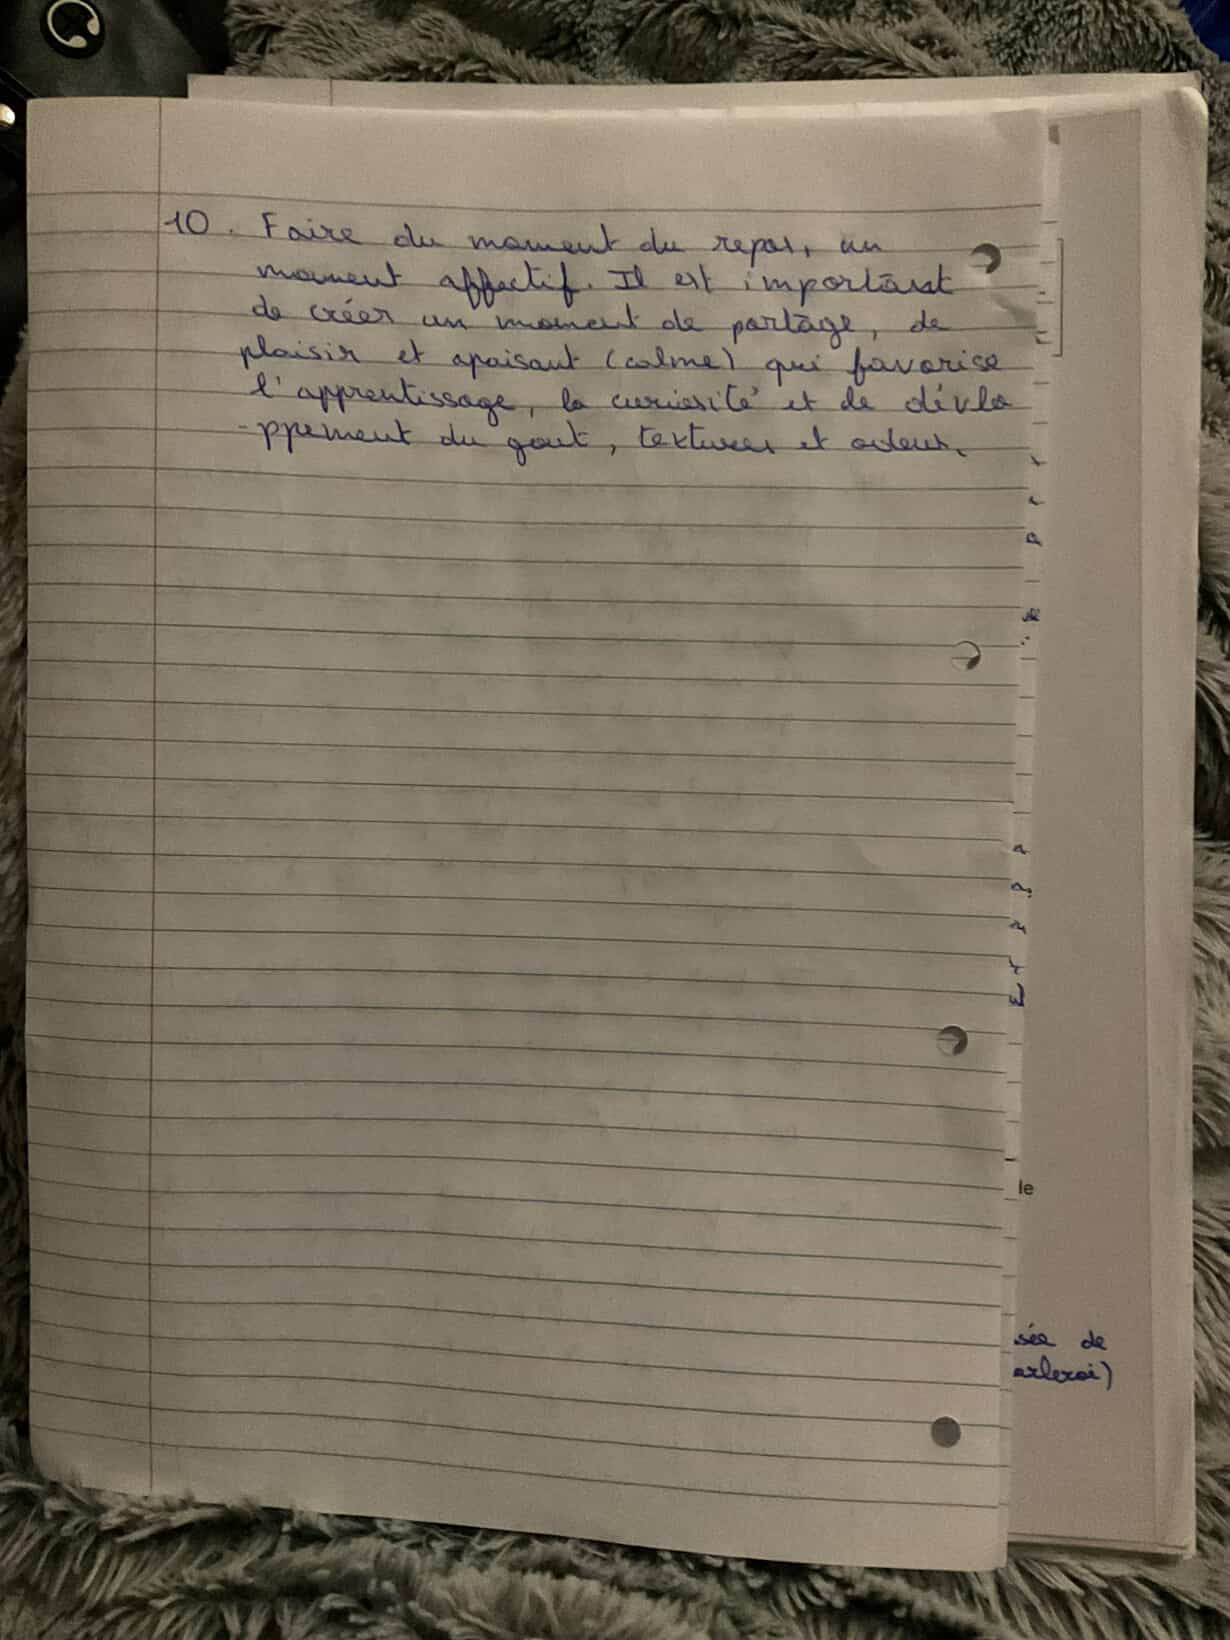 10. Faire du moment du repas, un
moment affectif. Il est important
de créer un moment de partage, de
plaisir et apaisant (calme) qui favorise
l'apprentissage, la curiosité et de dévlo
-ppement du gout, textures et odeurs.
le
sée de
arleroi)